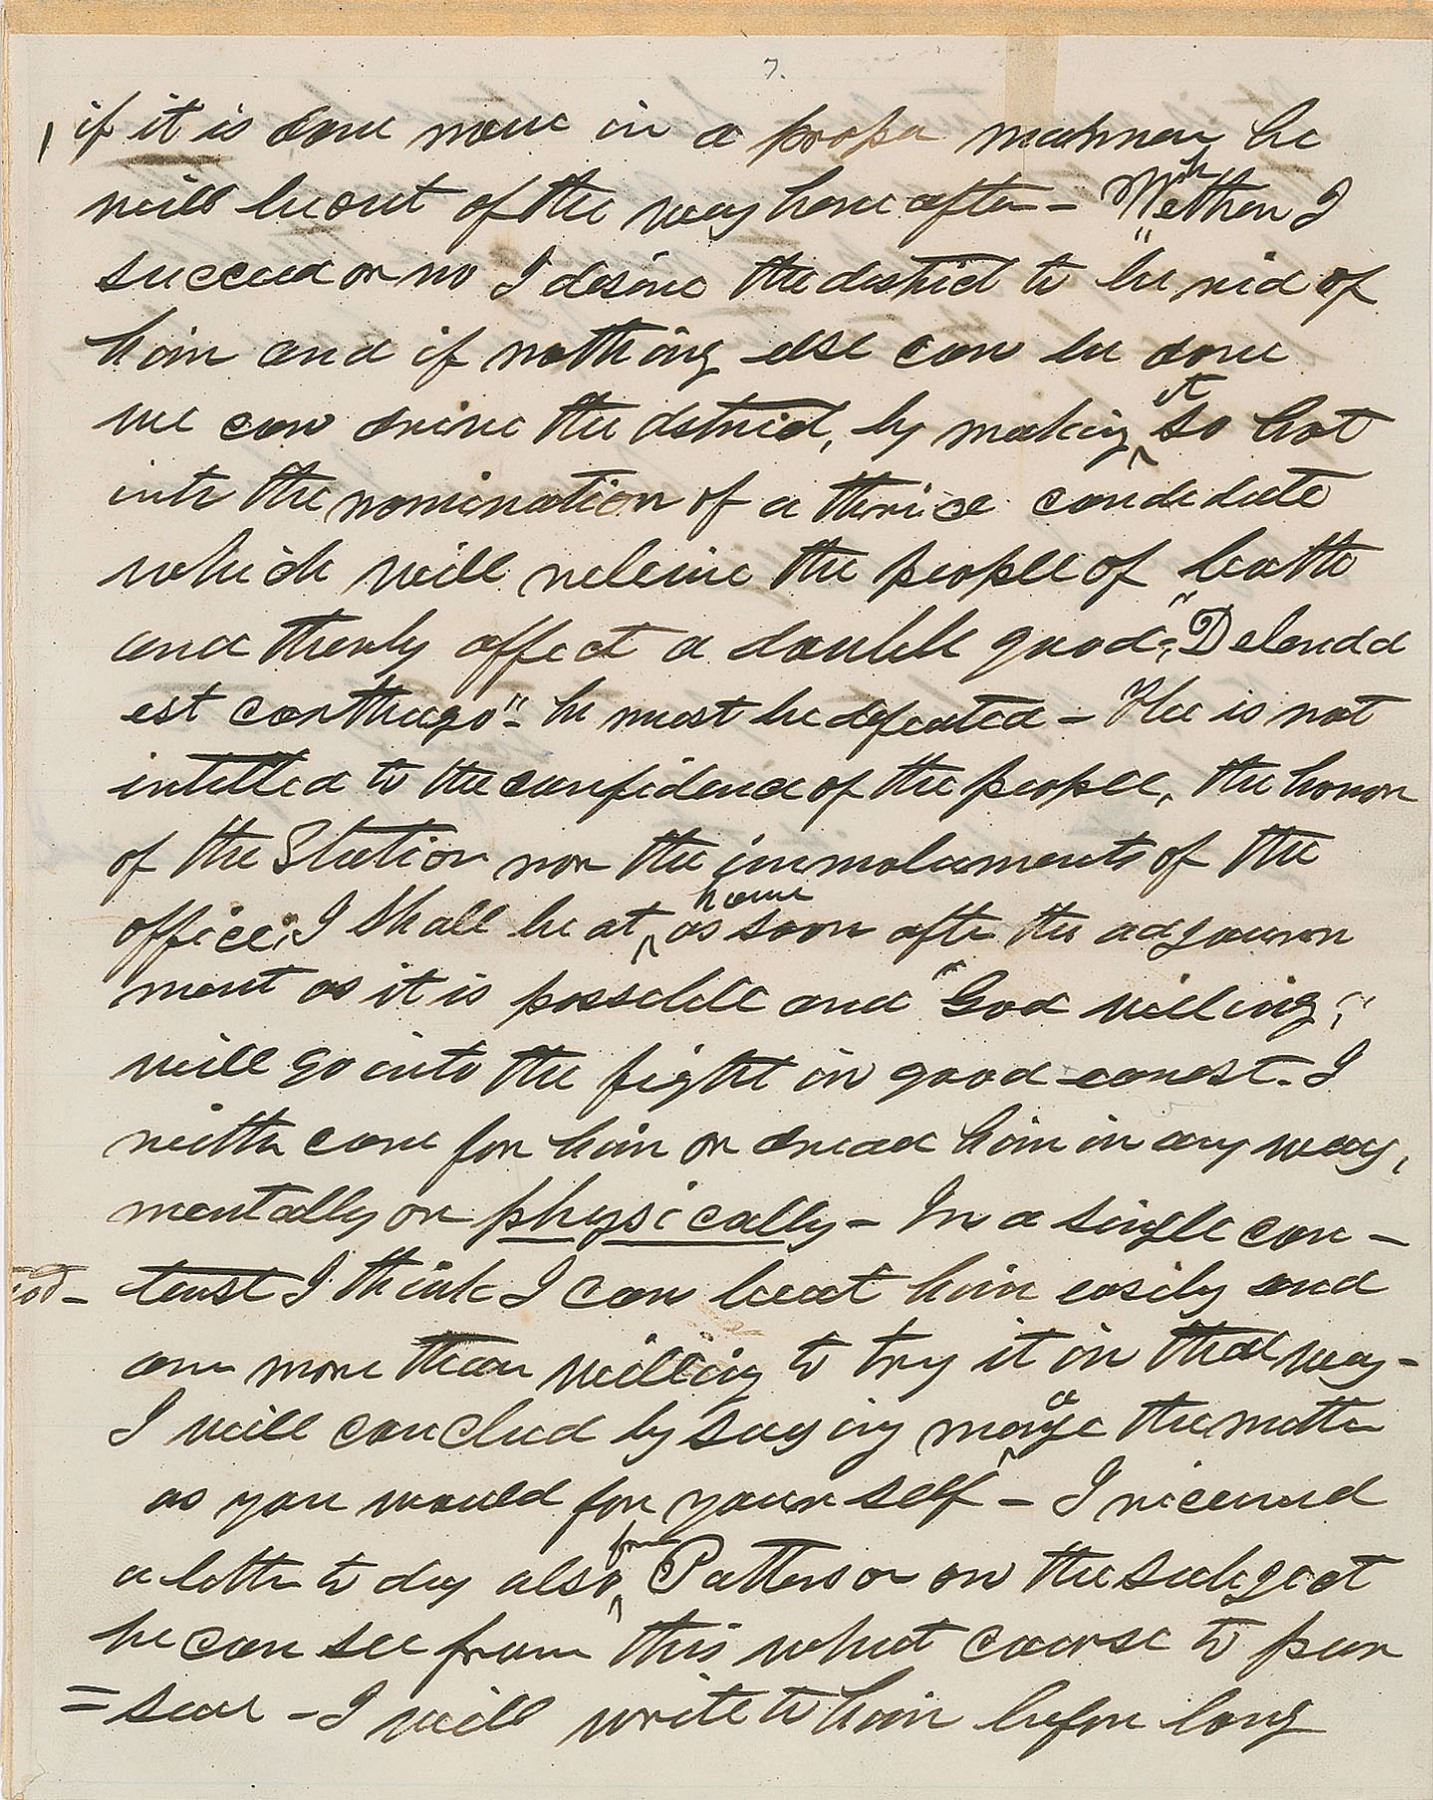 7.
, if it is done now in a proper manner he
will be out of the way here after - Wethern I
succeed or no I desire the district to "be rid of
him and if nothing else can be done
we can drive the district, by making it so hot
into the nomination of a thrice candidate
which will releive the people of boath
and therby affect a double good; "Delenda
est carthago" - he must be defeated - Hee is not
intitled to the confidence of the people, the honor
of the Station nor the immoluments of the
office; I Shall be at home as soon after the adjourn
ment as it is possible and "God willing;"
will go into the fight in good eanest. I
neither care for him or dread him in any way,
mentally or physically - In a single con -
test I think I can beat him easily and
am more than willing to try it in that way -
I will conclud by saying the matter
as you would for your self - I received
a letter to day also from Patterson on the subject
he can see from this what course to pur
= sue - I will write to him before long